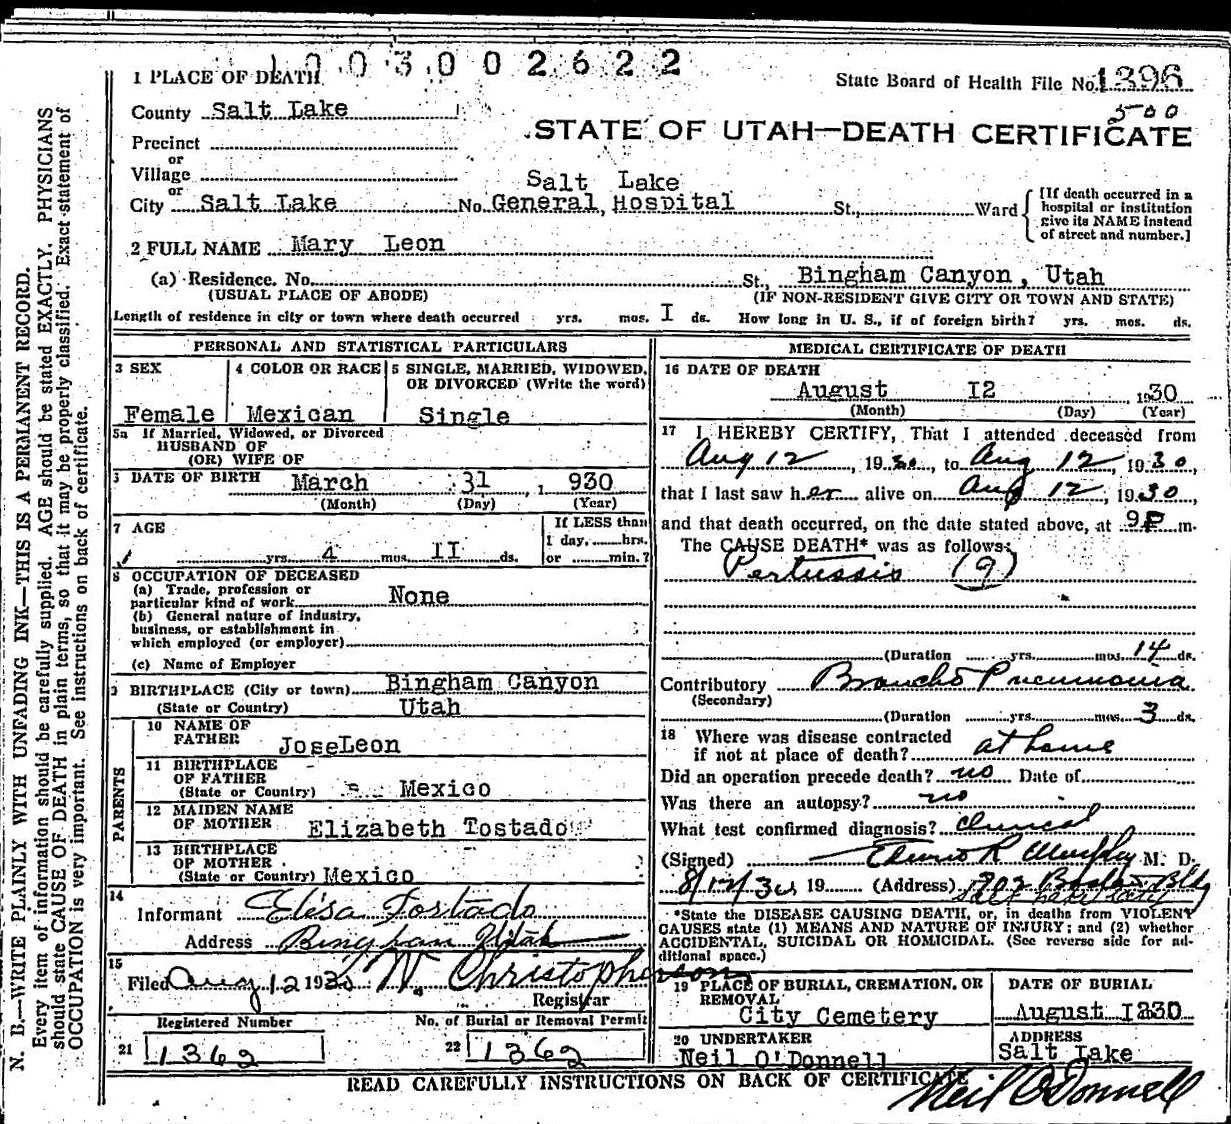 1003002622
1 PLACE OF DEATH
State Board of Health File No. 1396
County Salt Lake
500
STATE OF UTAH—DEATH CERTIFICATE
Precinct
or
Village
or
City Salt Lake No. Salt Lake General Hospital St., Ward
[If death occurred in a hospital or institution give its NAME instead of street and number.]
2 FULL NAME Mary Leon
(a) Residence. No. St., Bingham Canyon, Utah
(USUAL PLACE OF ABODE) (IF NON-RESIDENT GIVE CITY OR TOWN AND STATE)
Length of residence in city or town where death occurred yrs. mos. I ds. How long in U. S., if of foreign birth? yrs. mos. ds.
PERSONAL AND STATISTICAL PARTICULARS
3 SEX
Female
4 COLOR OR RACE
Mexican
5 SINGLE, MARRIED, WIDOWED,
OR DIVORCED (Write the word)
Single
5a If Married, Widowed, or Divorced
HUSBAND OF
(OR) WIFE OF
DATE OF BIRTH March 31, 1930
(Month) (Day) (Year)
7 AGE
yrs. 4 mos. II ds.
If LESS than
1 day, hrs.
or min.?
8 OCCUPATION OF DECEASED
(a) Trade, profession or
particular kind of work None
(b) General nature of industry,
business, or establishment in
which employed (or employer)
(c) Name of Employer
9 BIRTHPLACE (City or town) Bingham Canyon
(State or Country) Utah
PARENTS
10 NAME OF
FATHER JoseLeon
11 BIRTHPLACE
OF FATHER
(State or Country) Mexico
12 MAIDEN NAME
OF MOTHER Elizabeth Tostado
13 BIRTHPLACE
OF MOTHER
(State or Country) Mexico
14
Informant Elisa Tostado
Address Bingham Utah
15
Filed Aug 12 1930 W. Christopherson
Registrar
Registered Number
21 1362
No. of Burial or Removal Permit
22 1362
MEDICAL CERTIFICATE OF DEATH
16 DATE OF DEATH
August I2 1930
(Month) (Day) (Year)
17 I HEREBY CERTIFY, That I attended deceased from
Aug 12, 1930, to Aug 12, 1930,
that I last saw her alive on Aug 12, 1930,
and that death occurred, on the date stated above, at 9P m.
The CAUSE DEATH* was as follows:
Pertussis (9)
(Duration yrs. mos. 14 ds.
Contributory Broncho Pneumonia
(Secondary)
(Duration yrs. mos. 3 ds.
18 Where was disease contracted
if not at place of death? at home
Did an operation precede death? no Date of
Was there an autopsy? no
What test confirmed diagnosis? Clinical
(Signed) R Murphy M. D.
8/12/30 19 (Address) Bldg
Salt Lake City
*State the DISEASE CAUSING DEATH, or, in deaths from VIOLENT
CAUSES state (1) MEANS AND NATURE OF INJURY; and (2) whether
ACCIDENTAL, SUICIDAL OR HOMICIDAL. (See reverse side for ad-
ditional space.)
19 PLACE OF BURIAL, CREMATION, OR
REMOVAL
City Cemetery
DATE OF BURIAL
August I330
20 UNDERTAKER
Neil O'Donnell
ADDRESS
Salt Lake
READ CAREFULLY INSTRUCTIONS ON BACK OF CERTIFICATE
Neil O'Donnell
N. B.—WRITE PLAINLY WITH UNFADING INK—THIS IS A PERMANENT RECORD.
Every item of information should be carefully supplied. AGE should be stated EXACTLY. PHYSICIANS
should state CAUSE OF DEATH in plain terms, so that it may be properly classified. Exact statement of
OCCUPATION is very important. See instructions on back of certificate.